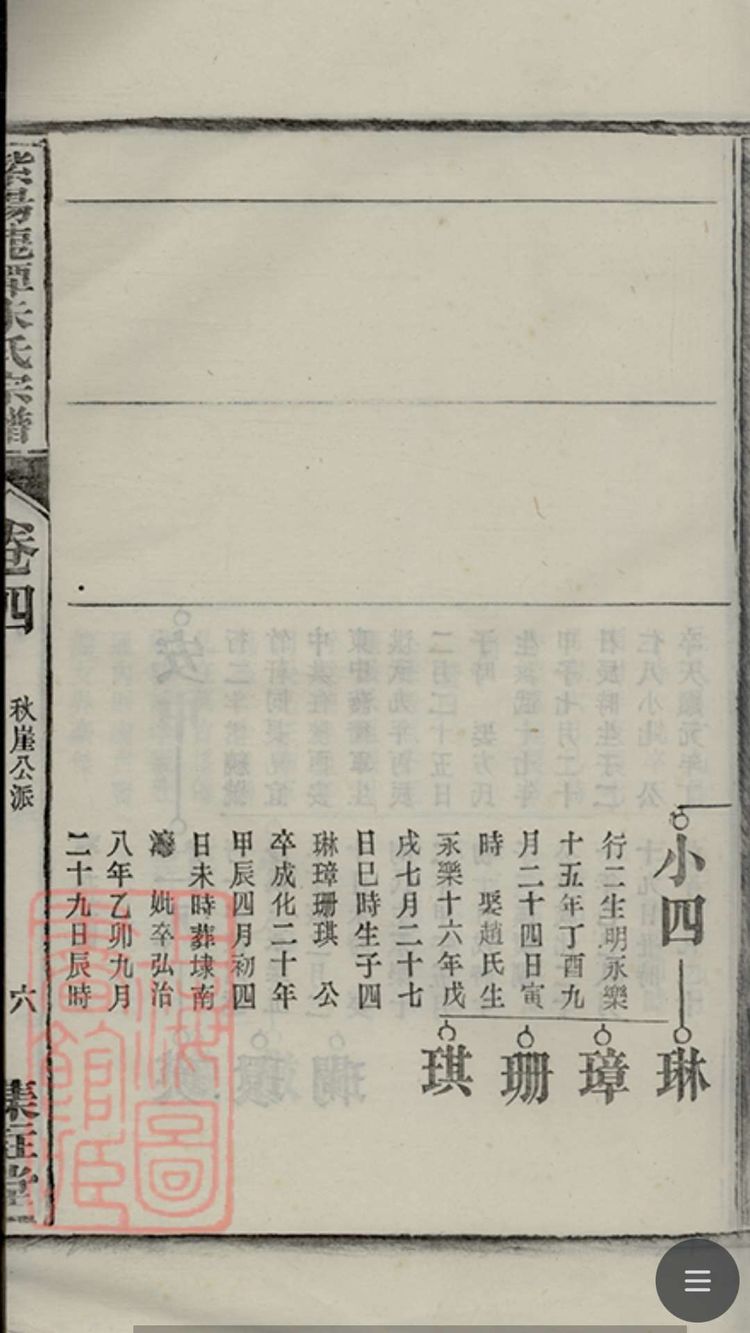 小四
行二生明永樂
十五年丁酉九
月二十四日寅
時 娶趙氏生
永樂十六年戊
戌七月二十七
日巳時生子四
琳璋珊琪 公
卒成化二十年
甲辰四月初四
日未時葬埭南
妣卒弘治
八年乙卯九月
二十九日辰時
琳
璋
珊
琪
氏宗譜
卷四
秋崖公派
六